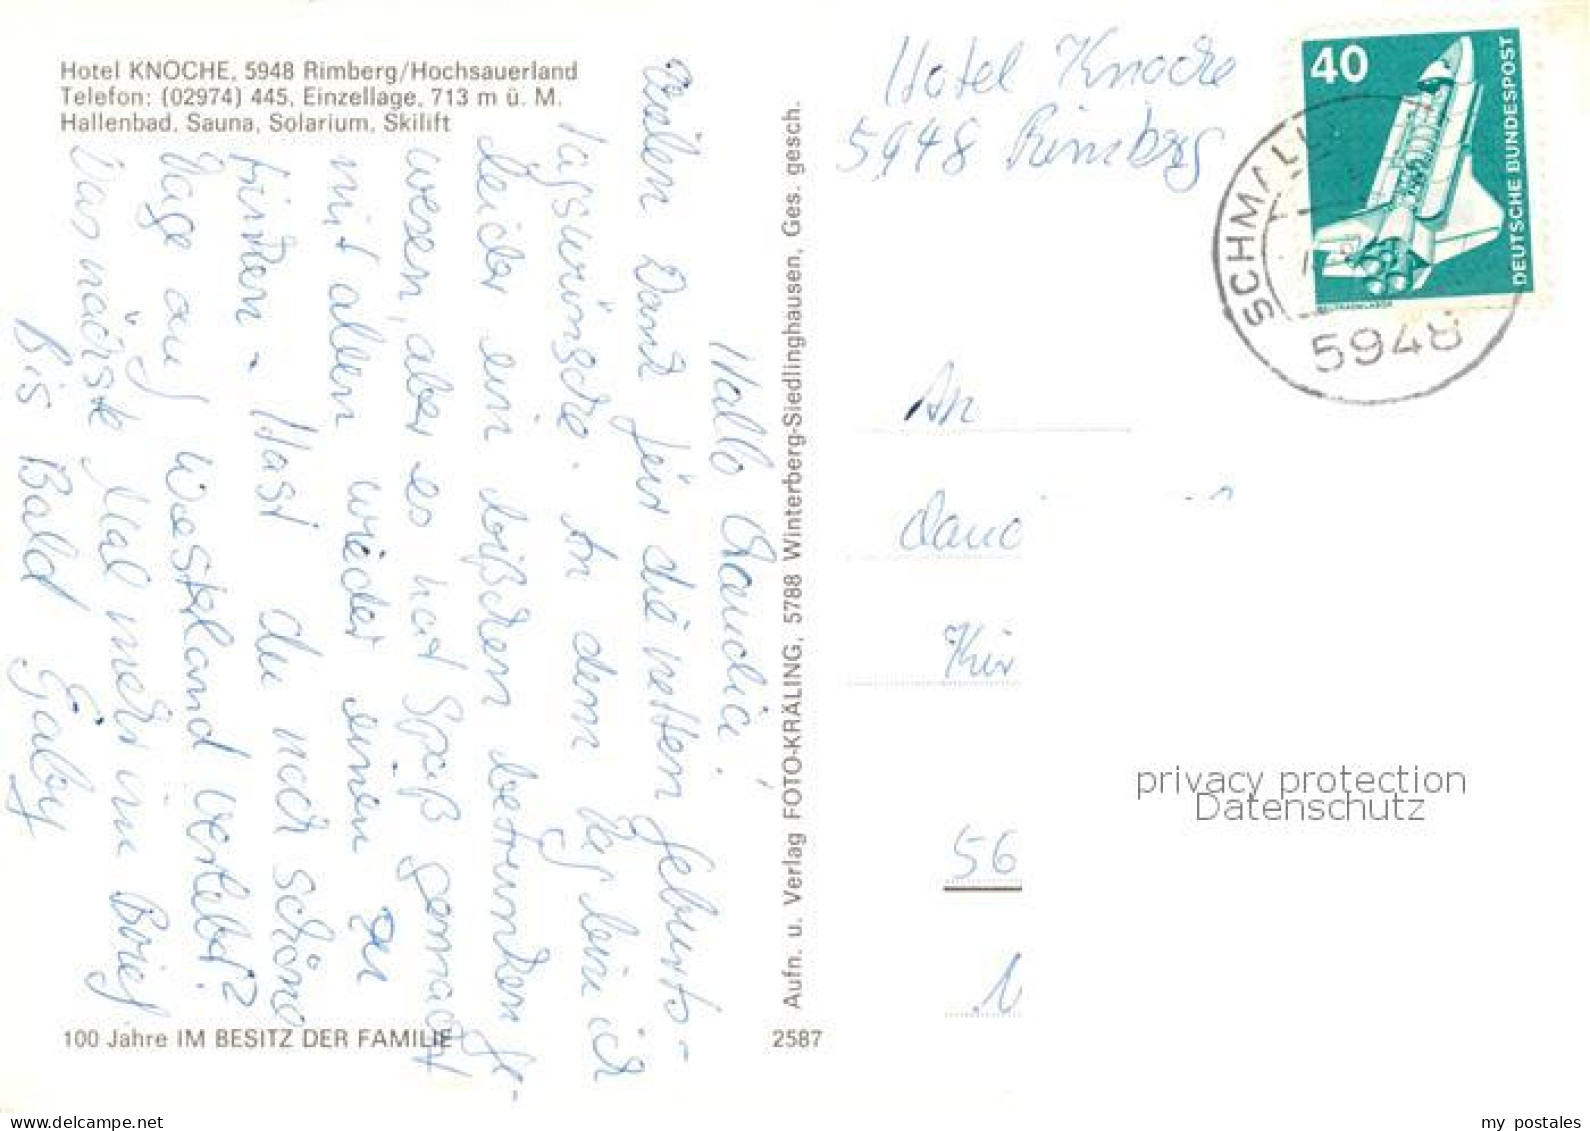 Hotel KNOCHE, 5948 Rimberg/Hochsauerland
Telefon: (02974) 445, Einzellage, 713 m ü. M.
Hallenbad, Sauna, Solarium, Skilift
Hallo Claudia!
Vielen Dank für die netten Geburts-
tagswünsche. An dem Tag bin ich
leider ein bißchen betrunken ge-
wesen, aber es hat Spaß gemacht
mit allen wieder einen zu
trinken. Hast du noch schöne
Tage auf Westerland verlebt?
Das nächste Mal mehr im Brief
Bis Bald Gaby
100 Jahre IM BESITZ DER FAMILIE
2587
Aufn. u. Verlag FOTO-KRÄLING, 5788 Winterberg-Siedlinghausen, Ges. gesch.
Hotel Knoche
5948 Rimberg
40
DEUTSCHE BUNDESPOST
SCHMALL
5948
An
Kir
56
privacy protection
Datenschutz
my postales